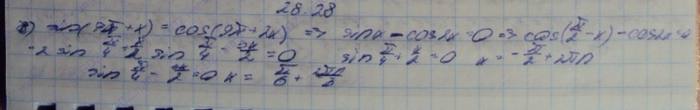 28.28
б) sin(9π/2+x) = cos(9π+2x) => sinx - cos2x=0 => cos(π/2-x)-cos2x=0
-2 sin π/4 - x/2 sin π/4 - 3x/2 = 0 sin π/4 + x/2 = 0 x = -π/2 + 2πn
sin π/4 - 3x/2 = 0 x = π/6 + 2πn/3